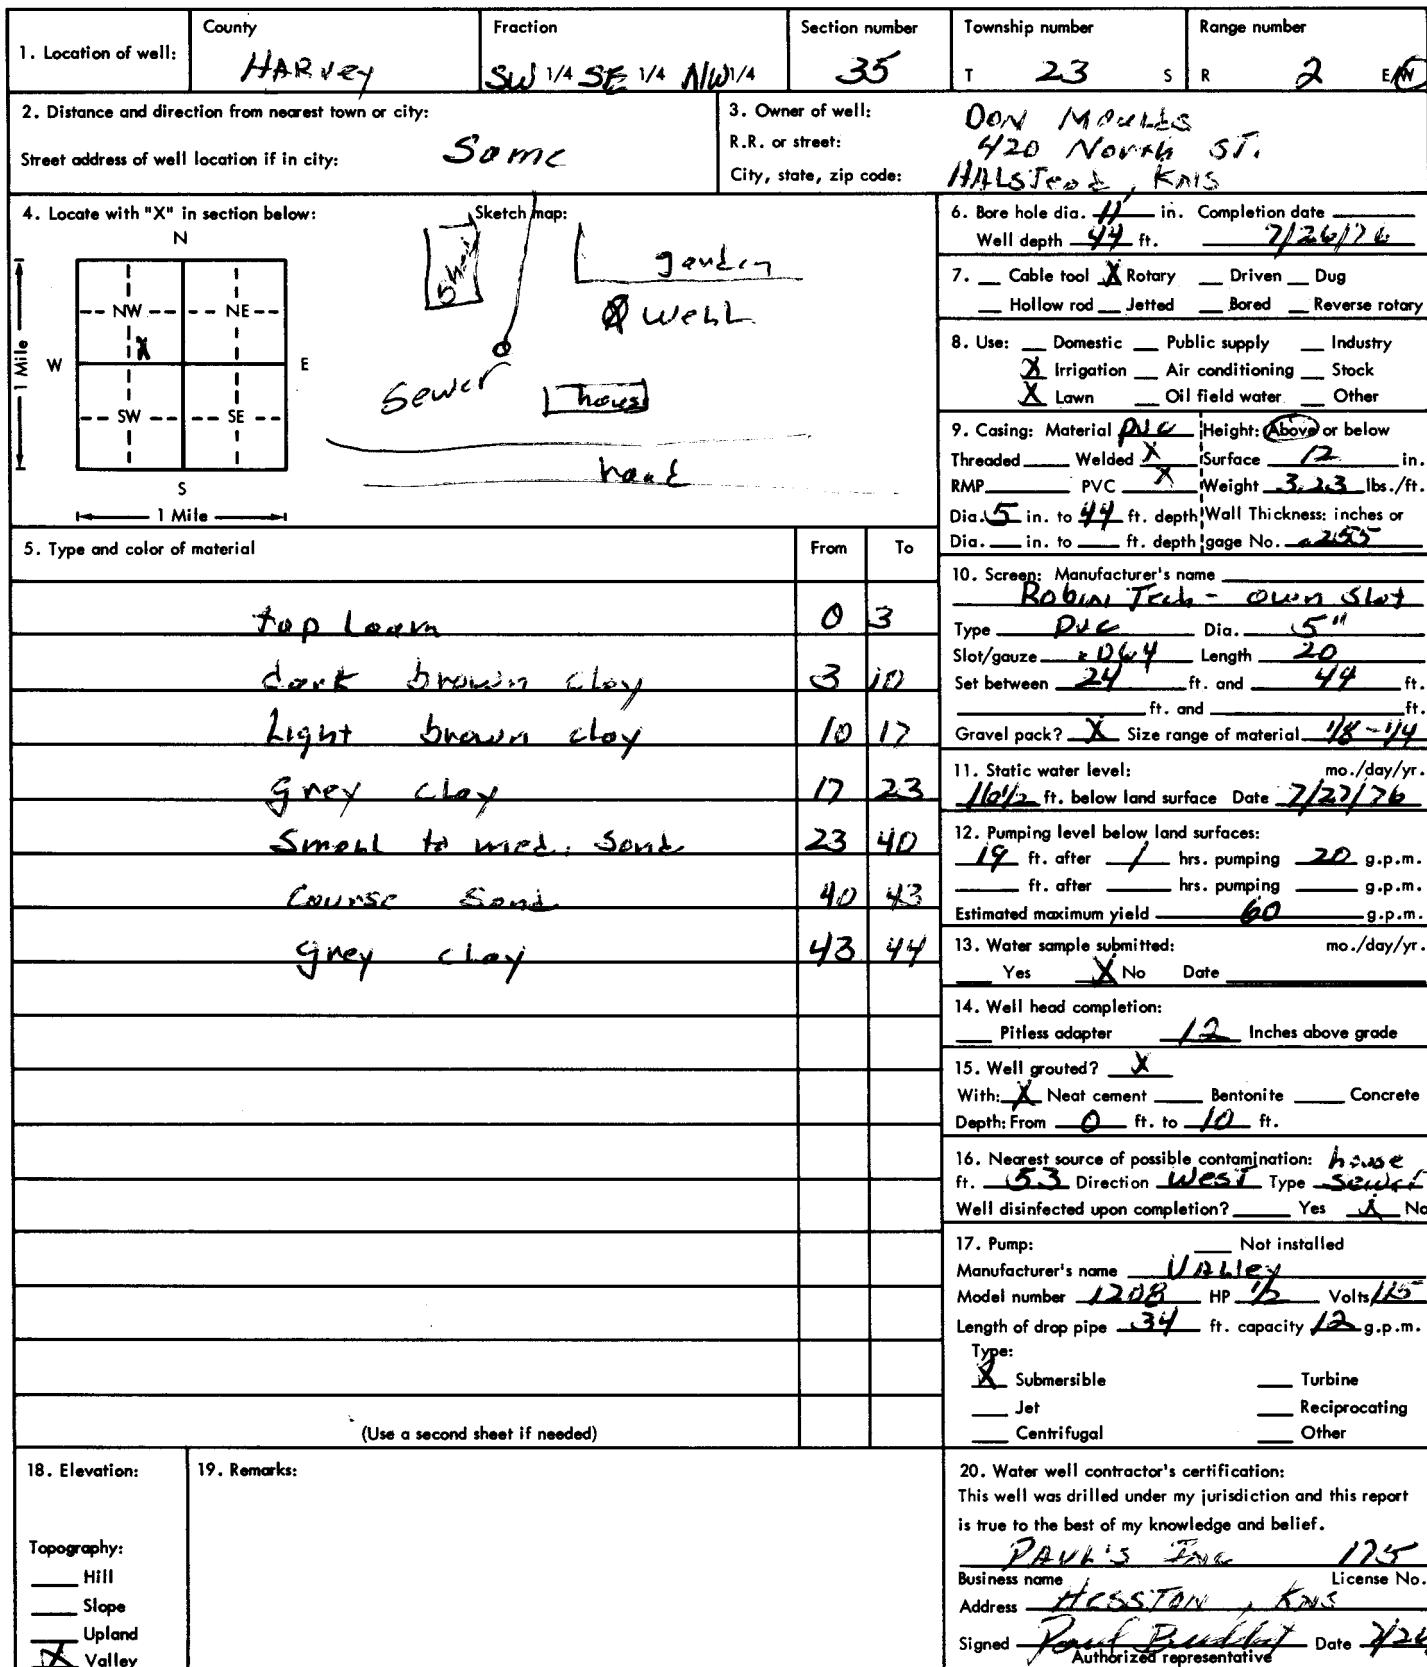 1. Location of well:
County
HARVey
Fraction
SW 1/4 SE 1/4 NW 1/4
Section number
35
Township number
T 23 S
Range number
R 2 E/W
2. Distance and direction from nearest town or city:
Street address of well location if in city: Same
3. Owner of well: DON
R.R. or street: 420 North ST.
City, state, zip code: HALSTead, KNS
4. Locate with "X" in section below:
N
NW NE
X
W E
SW SE
S
1 Mile
1 Mile
Sketch map:
garden
Well
Sewer
hous
road
5. Type and color of material From To
top Loam 0 3
dark brown clay 3 10
Light brown clay 10 17
grey clay 17 23
Small to med. Sand 23 40
Course Sand 40 43
grey clay 43 44
(Use a second sheet if needed)
6. Bore hole dia. 11 in. Completion date
Well depth 44 ft. 7/26/76
7. Cable tool X Rotary Driven Dug
Hollow rod Jetted Bored Reverse rotary
8. Use: Domestic Public supply Industry
X Irrigation Air conditioning Stock
X Lawn Oil field water Other
9. Casing: Material PVC Height: Above or below
Threaded Welded X Surface 12 in.
RMP PVC X Weight 3.23 lbs./ft.
Dia. 5 in. to 44 ft. depth Wall Thickness: inches or
Dia. in. to ft. depth gage No. .255
10. Screen: Manufacturer's name
Robin Tech - own Slot
Type PVC Dia. 5"
Slot/gauze .064 Length 20
Set between 24 ft. and 44 ft.
ft. and ft.
Gravel pack? X Size range of material 1/8 - 1/4
11. Static water level: mo./day/yr.
16 1/2 ft. below land surface Date 7/27/76
12. Pumping level below land surfaces:
19 ft. after 1 hrs. pumping 20 g.p.m.
ft. after hrs. pumping g.p.m.
Estimated maximum yield 60 g.p.m.
13. Water sample submitted: mo./day/yr.
Yes X No Date
14. Well head completion:
Pitless adapter 12 Inches above grade
15. Well grouted? X
With: X Neat cement Bentonite Concrete
Depth: From 0 ft. to 10 ft.
16. Nearest source of possible contamination: house
ft. 53 Direction West Type Sewer
Well disinfected upon completion? Yes X No
17. Pump: Not installed
Manufacturer's name VALLey
Model number 1208 HP 1/2 Volts 115
Length of drop pipe 34 ft. capacity 12 g.p.m.
Type:
X Submersible Turbine
Jet Reciprocating
Centrifugal Other
18. Elevation:
Topography:
Hill
Slope
Upland
X Valley
19. Remarks:
20. Water well contractor's certification:
This well was drilled under my jurisdiction and this report
is true to the best of my knowledge and belief.
PAUL'S Inc 175
Business name License No.
Address HESSTON, KNS
Signed Paul Date 7/26
Authorized representative